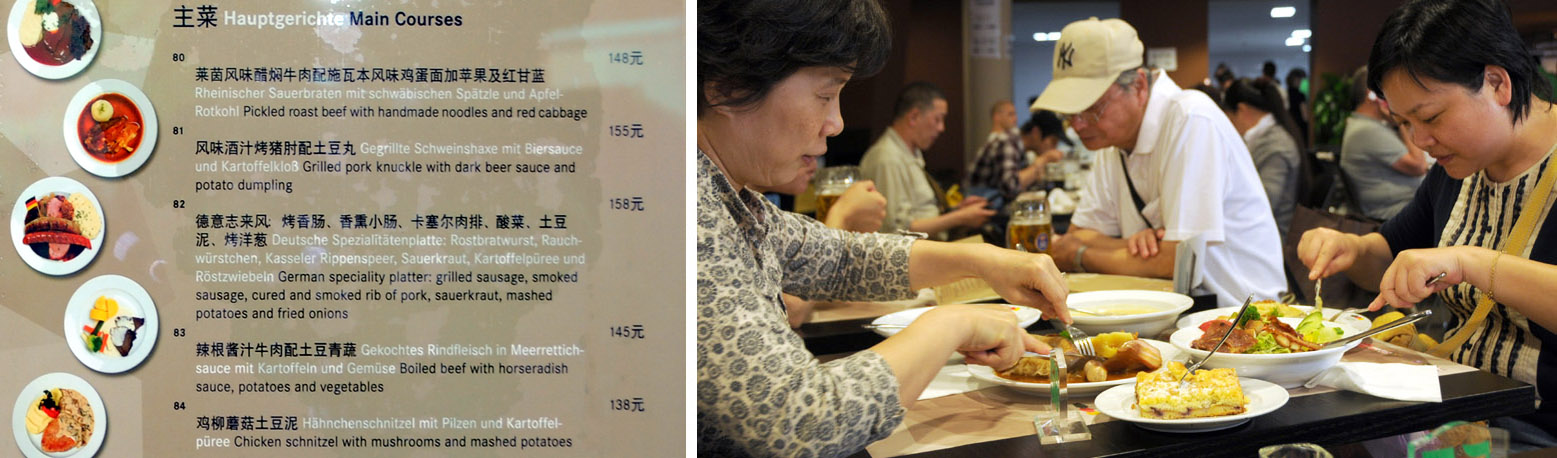 主菜 Hauptgerichte Main Courses
80 148元
莱茵风味醋焖牛肉配施瓦本风味鸡蛋面加苹果及红甘蓝
Rheinischer Sauerbraten mit schwäbischen Spätzle und Apfel-
Rotkohl Pickled roast beef with handmade noodles and red cabbage
81 155元
风味酒汁烤猪肘配土豆丸 Gegrillte Schweinshaxe mit Biersauce
und Kartoffelkloß Grilled pork knuckle with dark beer sauce and
potato dumpling
82 158元
德意志来风: 烤香肠、香熏小肠、卡塞尔肉排、酸菜、土豆
泥、烤洋葱 Deutsche Spezialitätenplatte: Rostbratwurst, Rauch-
würstchen, Kasseler Rippenspeer, Sauerkraut, Kartoffelpüree und
Röstzwiebeln German speciality platter: grilled sausage, smoked
sausage, cured and smoked rib of pork, sauerkraut, mashed
potatoes and fried onions
83 145元
辣根酱汁牛肉配土豆青蔬 Gekochtes Rindfleisch in Meerrettich-
sauce mit Kartoffeln und Gemüse Boiled beef with horseradish
sauce, potatoes and vegetables
84 138元
鸡柳蘑菇土豆泥 Hähnchenschnitzel mit Pilzen und Kartoffel-
püree Chicken schnitzel with mushrooms and mashed potatoes
NY